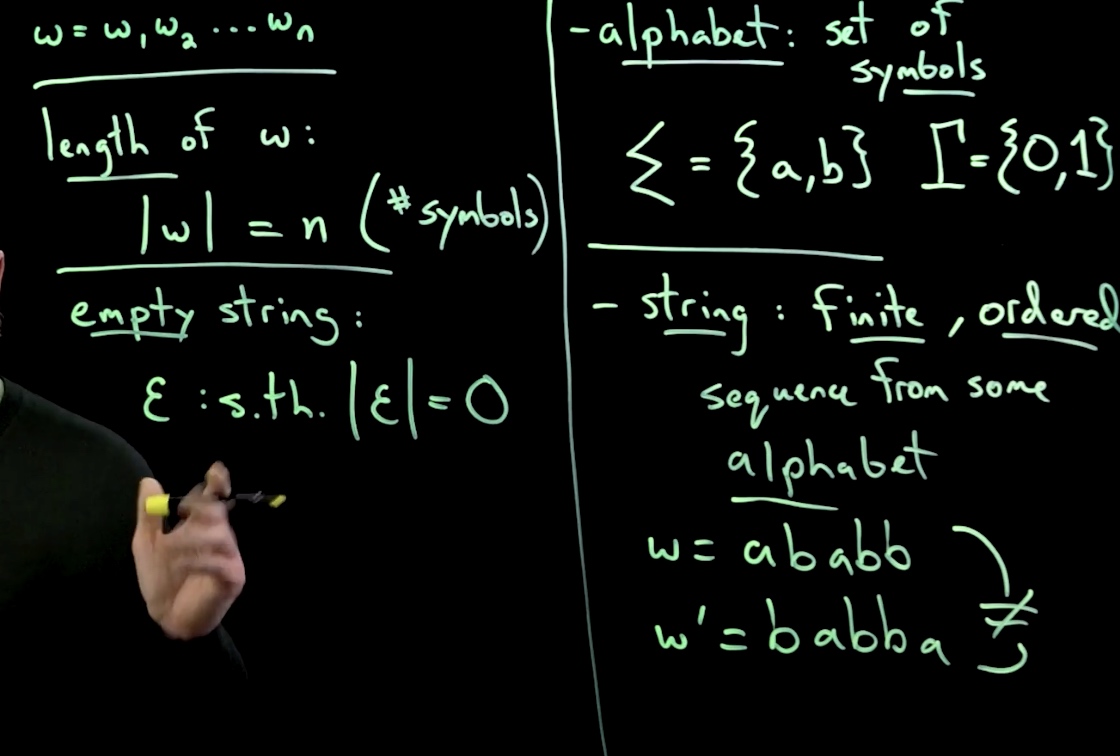 w = w₁w₂ ... wₙ
length of w:
|w| = n (# symbols)
empty string:
ε : s.th. |ε| = 0
- alphabet: set of
symbols
Σ = {a,b} Γ = {0,1}
- string : finite, ordered
sequence from some
alphabet
w = ababb
≠
w' = babba